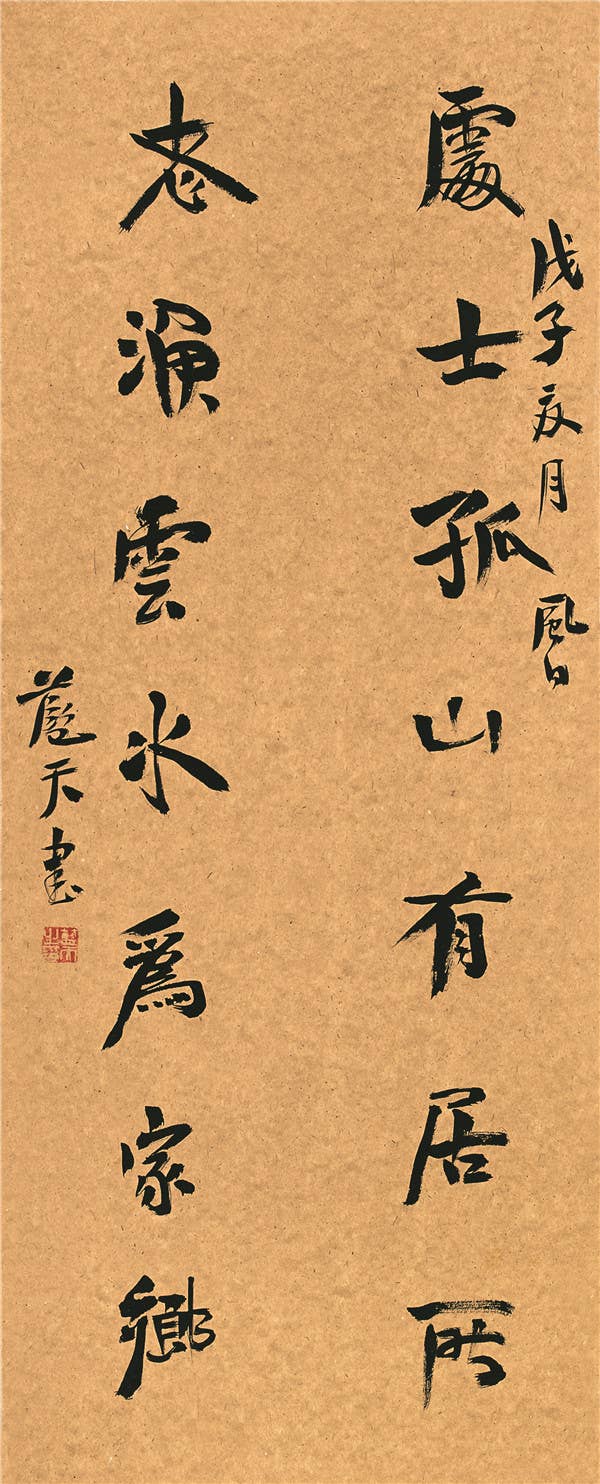 戊子夏月 風日
處士孤山有居所
老漁雲水爲家鄉
天書